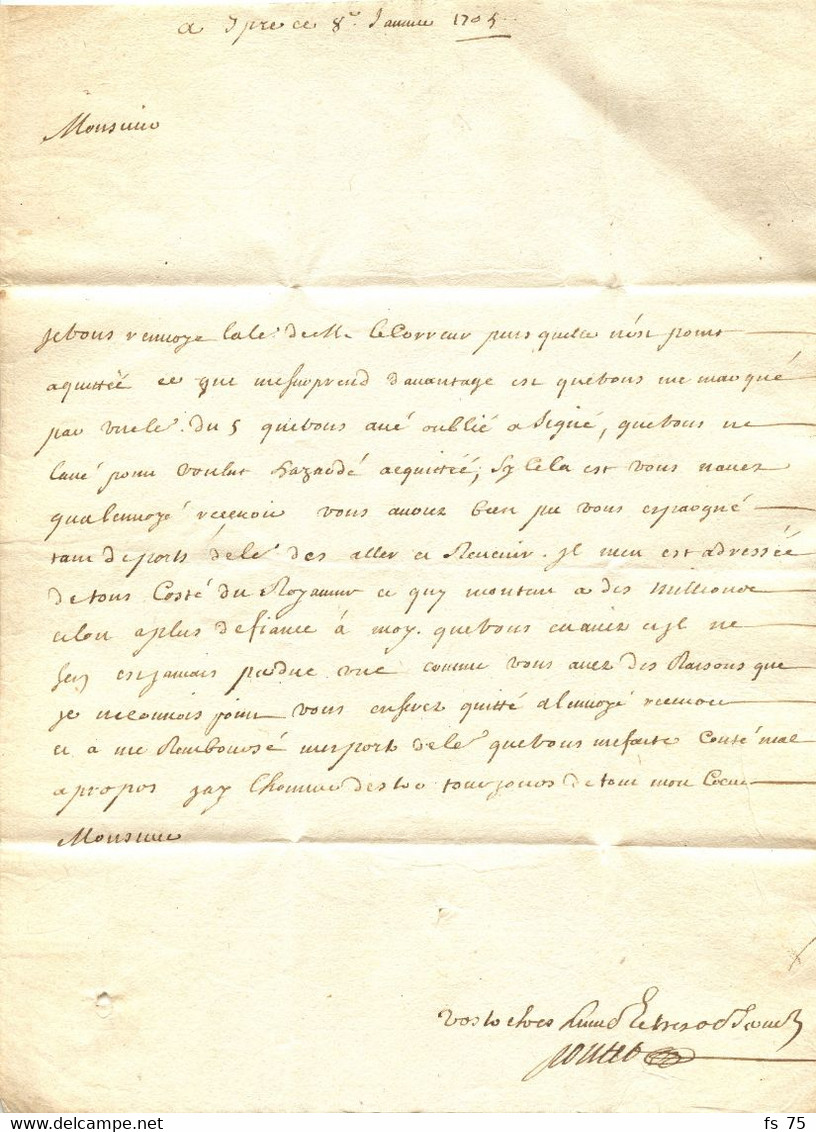 a Ipre ce 8e Janvier 1705
Monsieur
Je vous renvoye la le: de Mr le Correur puis quelle nest point
aquittée ce que me surprend davantage est que vous me marqué
par vre le. du 5 que vous avé oublié a signé, que vous ne
lavé point voulut hazardé acquittée, sy cela est vous navez
qua lenvoyé recevoir vous auriez bien pu vous espargné
tant de ports de le des aller et Revenir. Il men est adressée
de tous Costé du Royaume ce quy monten a des millions
et lon a plus defiance a moy. que vous en aviez et Il ne
sen est jamais perdue une comme vous avez des Raisons que
je ne connois point vous en serez quitté a lenvoyé recevoir
et a me Remboursé mes port de le que vous me faite Couté mal
a propos jay lhonneur destre toujours de tout mon Coeur
Monsieur
Vostre tres humble et tres obeissant
fs 75